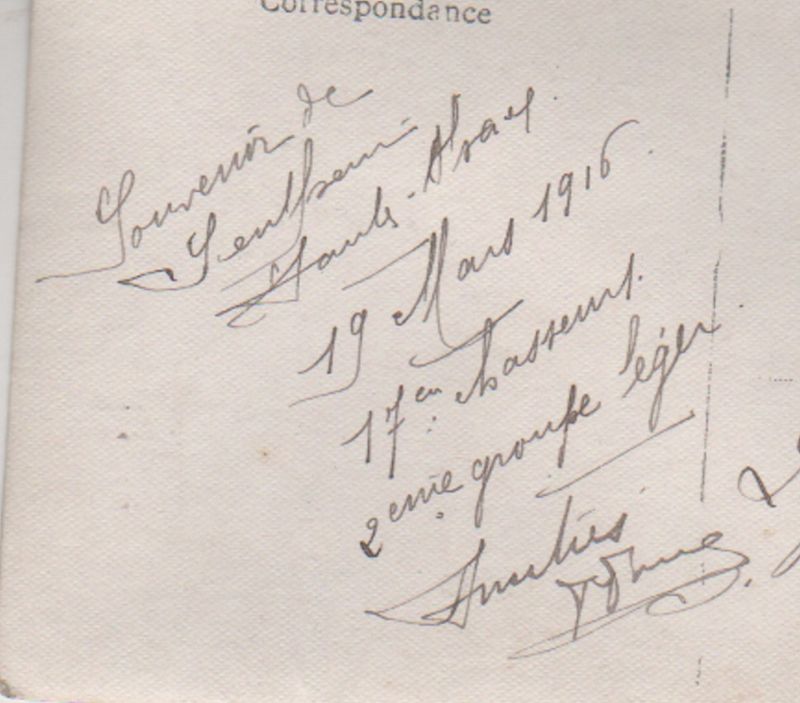 Correspondance
Souvenir de
Sentheim
Haute-Alsace
19 Mars 1916
17em chasseurs
2eme groupe léger
Amitiés